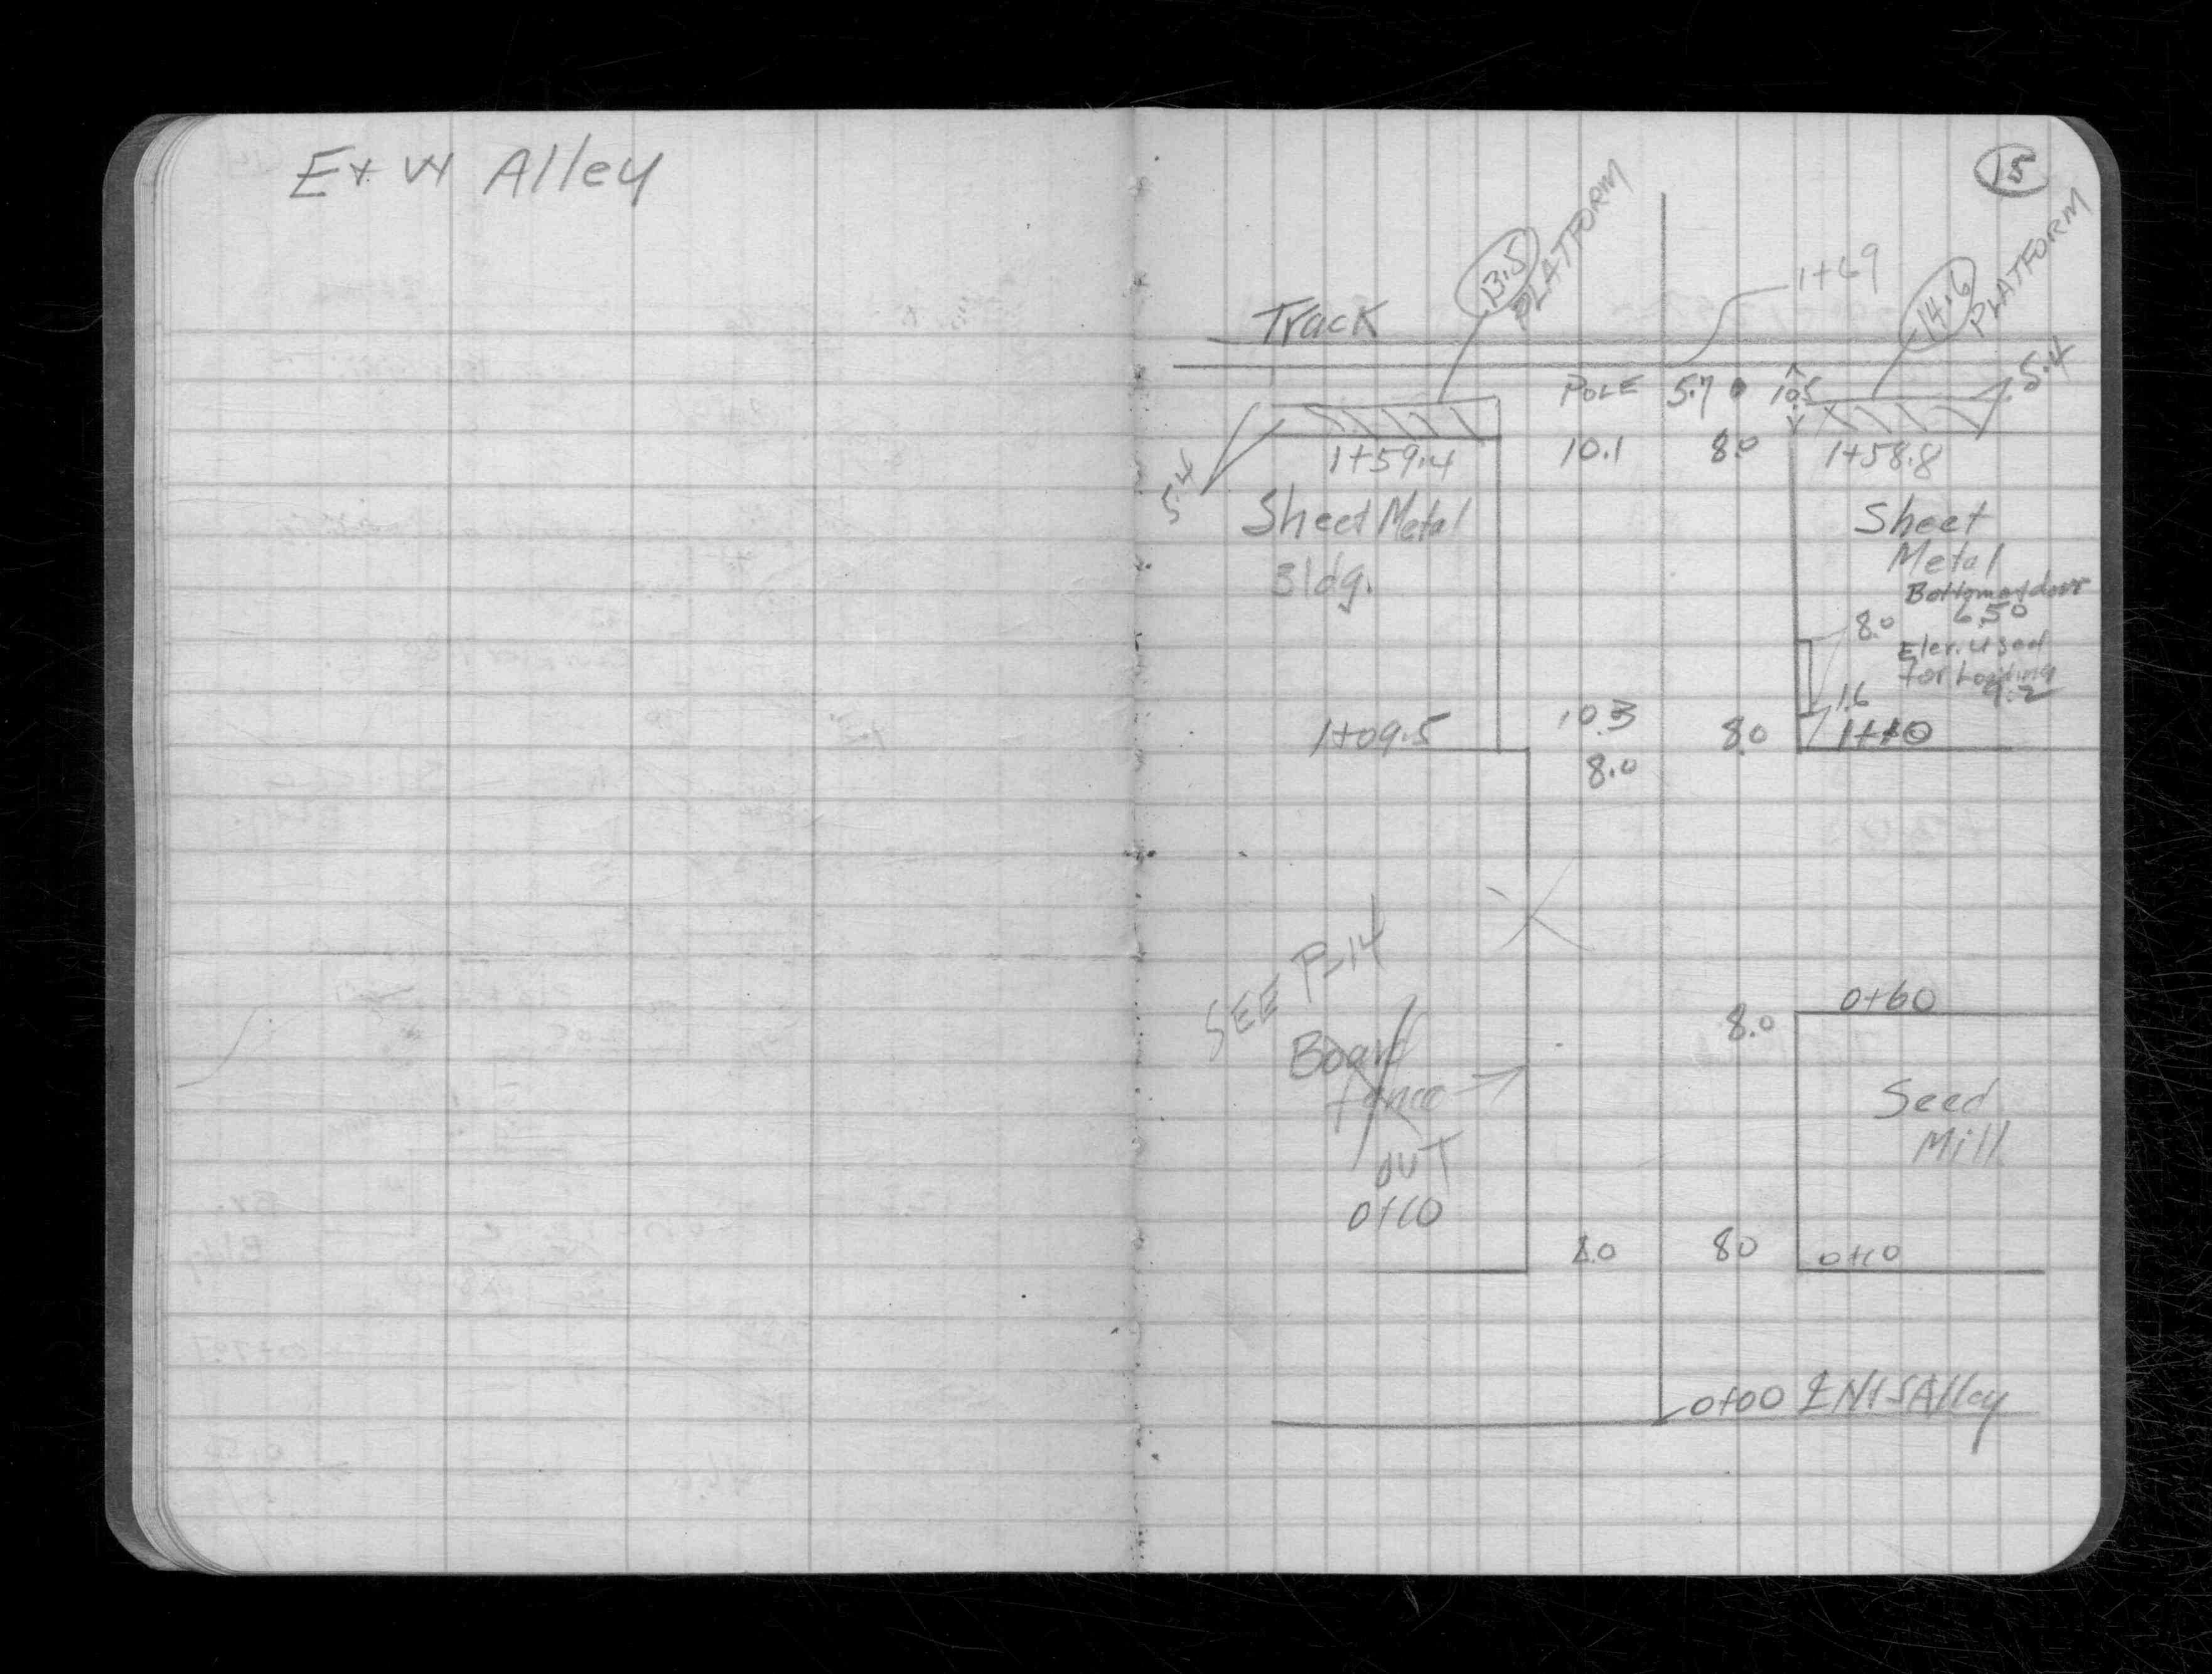 E + W Alley
15
13.5
PLATFORM
1+69
14.6
PLATFORM
Track
POLE 5.7 10.5
5.4
1+59.4
10.1
8.0
1+58.8
5.4
Sheet Metal
Bldg.
Sheet
Metal
Bottom of door
6.50
8.0
Elev. used
for Loading
9.2
1.6
1+09.5
10.3
8.0
1+10
8.0
SEE P-14
0+60
8.0
Board
fence
Seed
Mill
OUT
0+10
8.0
8.0
0+10
0+00 ℄ N+S Alley